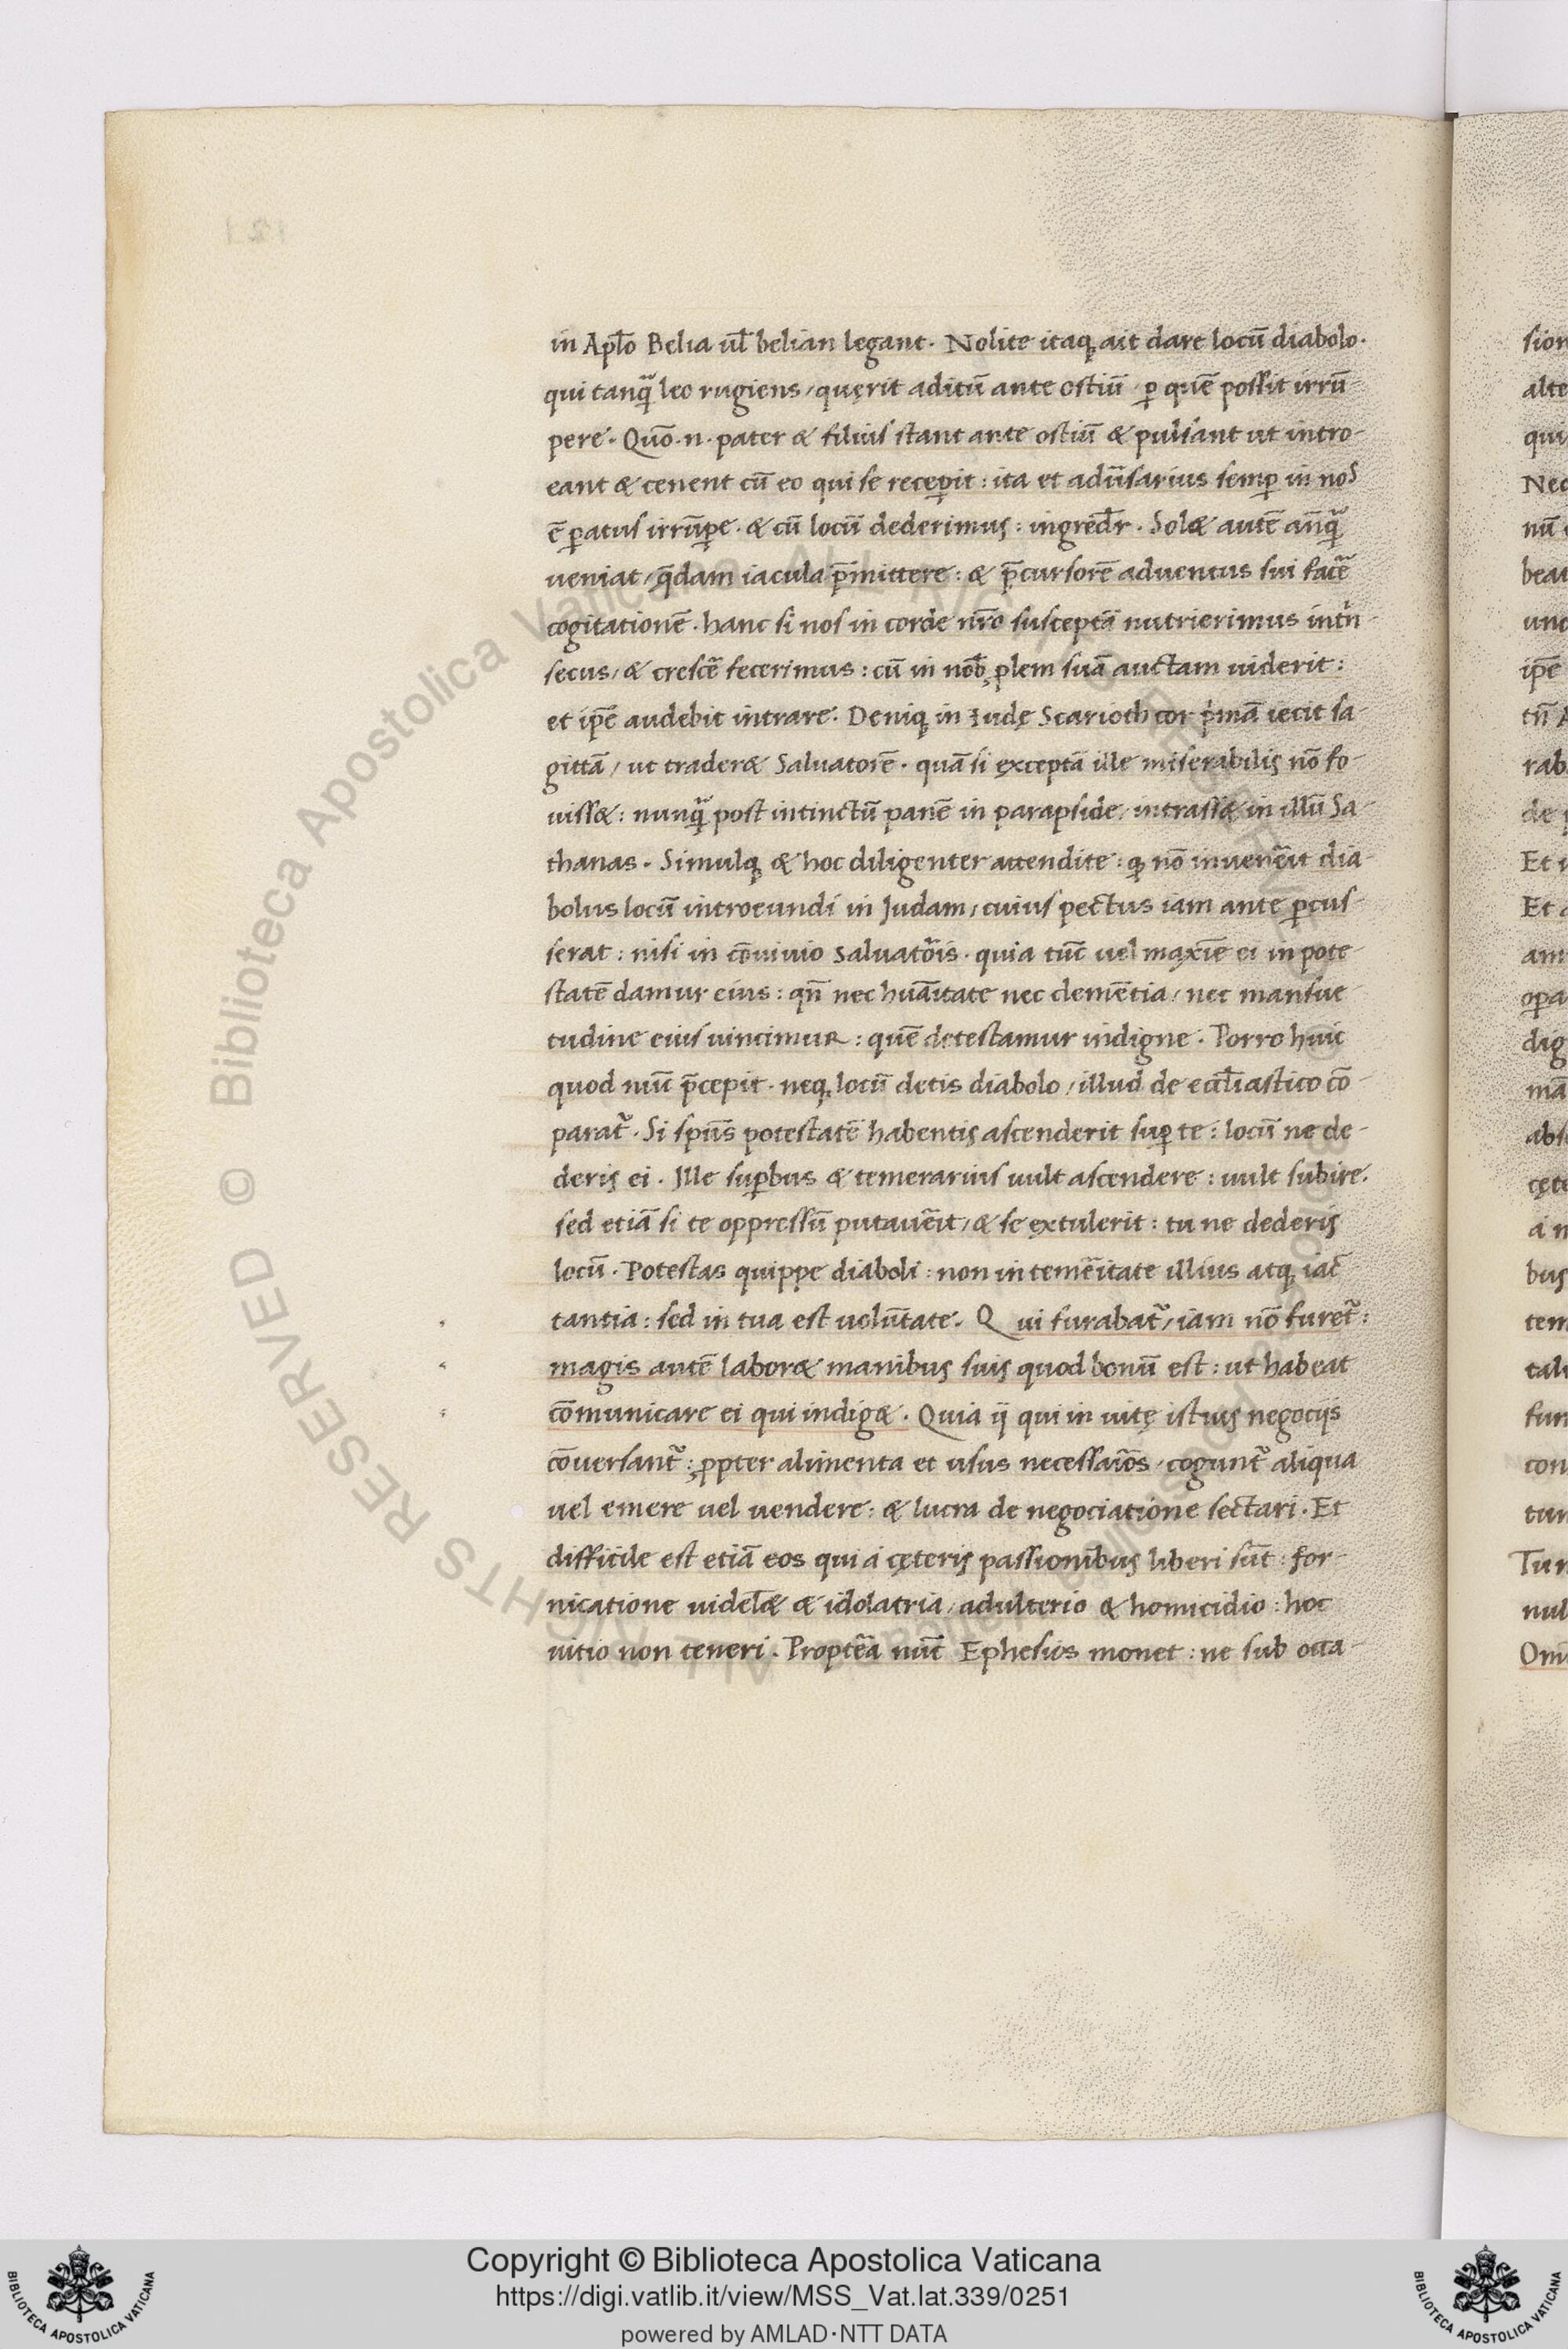 in Apl̄o Belia ul̄ belian legant. Nolite itaqꝫ ait dare locū diabolo.
qui tanqͣ leo rugiens, quęrit aditū ante ostiū, ꝑ quē possit irrū-
pere. Quō .n. pater & filius stant ante ostiū & pulsant ut intro-
eant & cenent cū eo qui se receꝑit: ita et adūsarius semꝑ in nos
ē ꝑatus irrūꝑe. & cū locū dederimus: ingredr̄. Solæ autē anqͣ̄
ueniat, q̄dam iacula p̄mittere: & p̄cursorē aduentus sui facē
cogitationē. hanc si nos in corde nr̄o susceptā nutrierimus intn̄
secus, & crescē fecerimus: cū in nob̄ ꝓlem suā auctam uiderit:
et ip̄e audebit intrare. Deniqꝫ in Iudę Scarioth cor pͥmā iecit sa-
gittā, ut traderæ Saluatorē. quā si exceptā ille miserabilis nō fo-
uissæ: nunqͣ post intinctū panē in parapside, intrassæ in illū Sa-
thanas. Simulqꝫ & hoc diligenter attendite: qꝫ nō inuen̄it dia-
bolus locū introeundi in Judam, cuius pectus iam ante ꝑcus-
serat: nisi in cōuiuio Saluatōis. quia tūc uel maxīe ei in pote-
statē damur eius: qn̄ nec huāitate nec clemētia, nec mansue-
tudine eius uincimur: quē detestamur indigne. Porro huic
quod nūc p̄cepit. neqꝫ locū detis diabolo, illud de eccl̄iastico cō-
parat᷑. Si spūs potestatē habentis ascenderit suꝑ te: locū ne de-
deris ei. Ille suꝑbus & temerarius uult ascendere: uult subire.
sed etiā si te oppressū putauēit, & se extulerit: tu ne dederis
locū. Potestas quippe diaboli: non in temēitate illius atqꝫ iac̄
tantia: sed in tua est uolūtate. Q ui furabat᷑, iam nō furet᷑:
magis autē laboræ manibus suis quod bonū est: ut habeat
cōmunicare ei qui indigæ. Quia ij qui in uitę istius negocijs
cōuersant᷑: ꝓpter alimenta et usus necessaīos, cogunt᷑ aliqua
uel emere uel uendere: & lucra de negociatione sectari. Et
difficile est etiā eos qui á cęteris passionib̄us liberi sūt: for-
nicatione uidel̄æ & idolatria, adulterio & homicidio: hoc
uitio non teneri. Proptēa nūc Ephesios monet: ne sub occa-
Copyright © Biblioteca Apostolica Vaticana
https://digi.vatlib.it/view/MSS_Vat.lat.339/0251
powered by AMLAD·NTT DATA